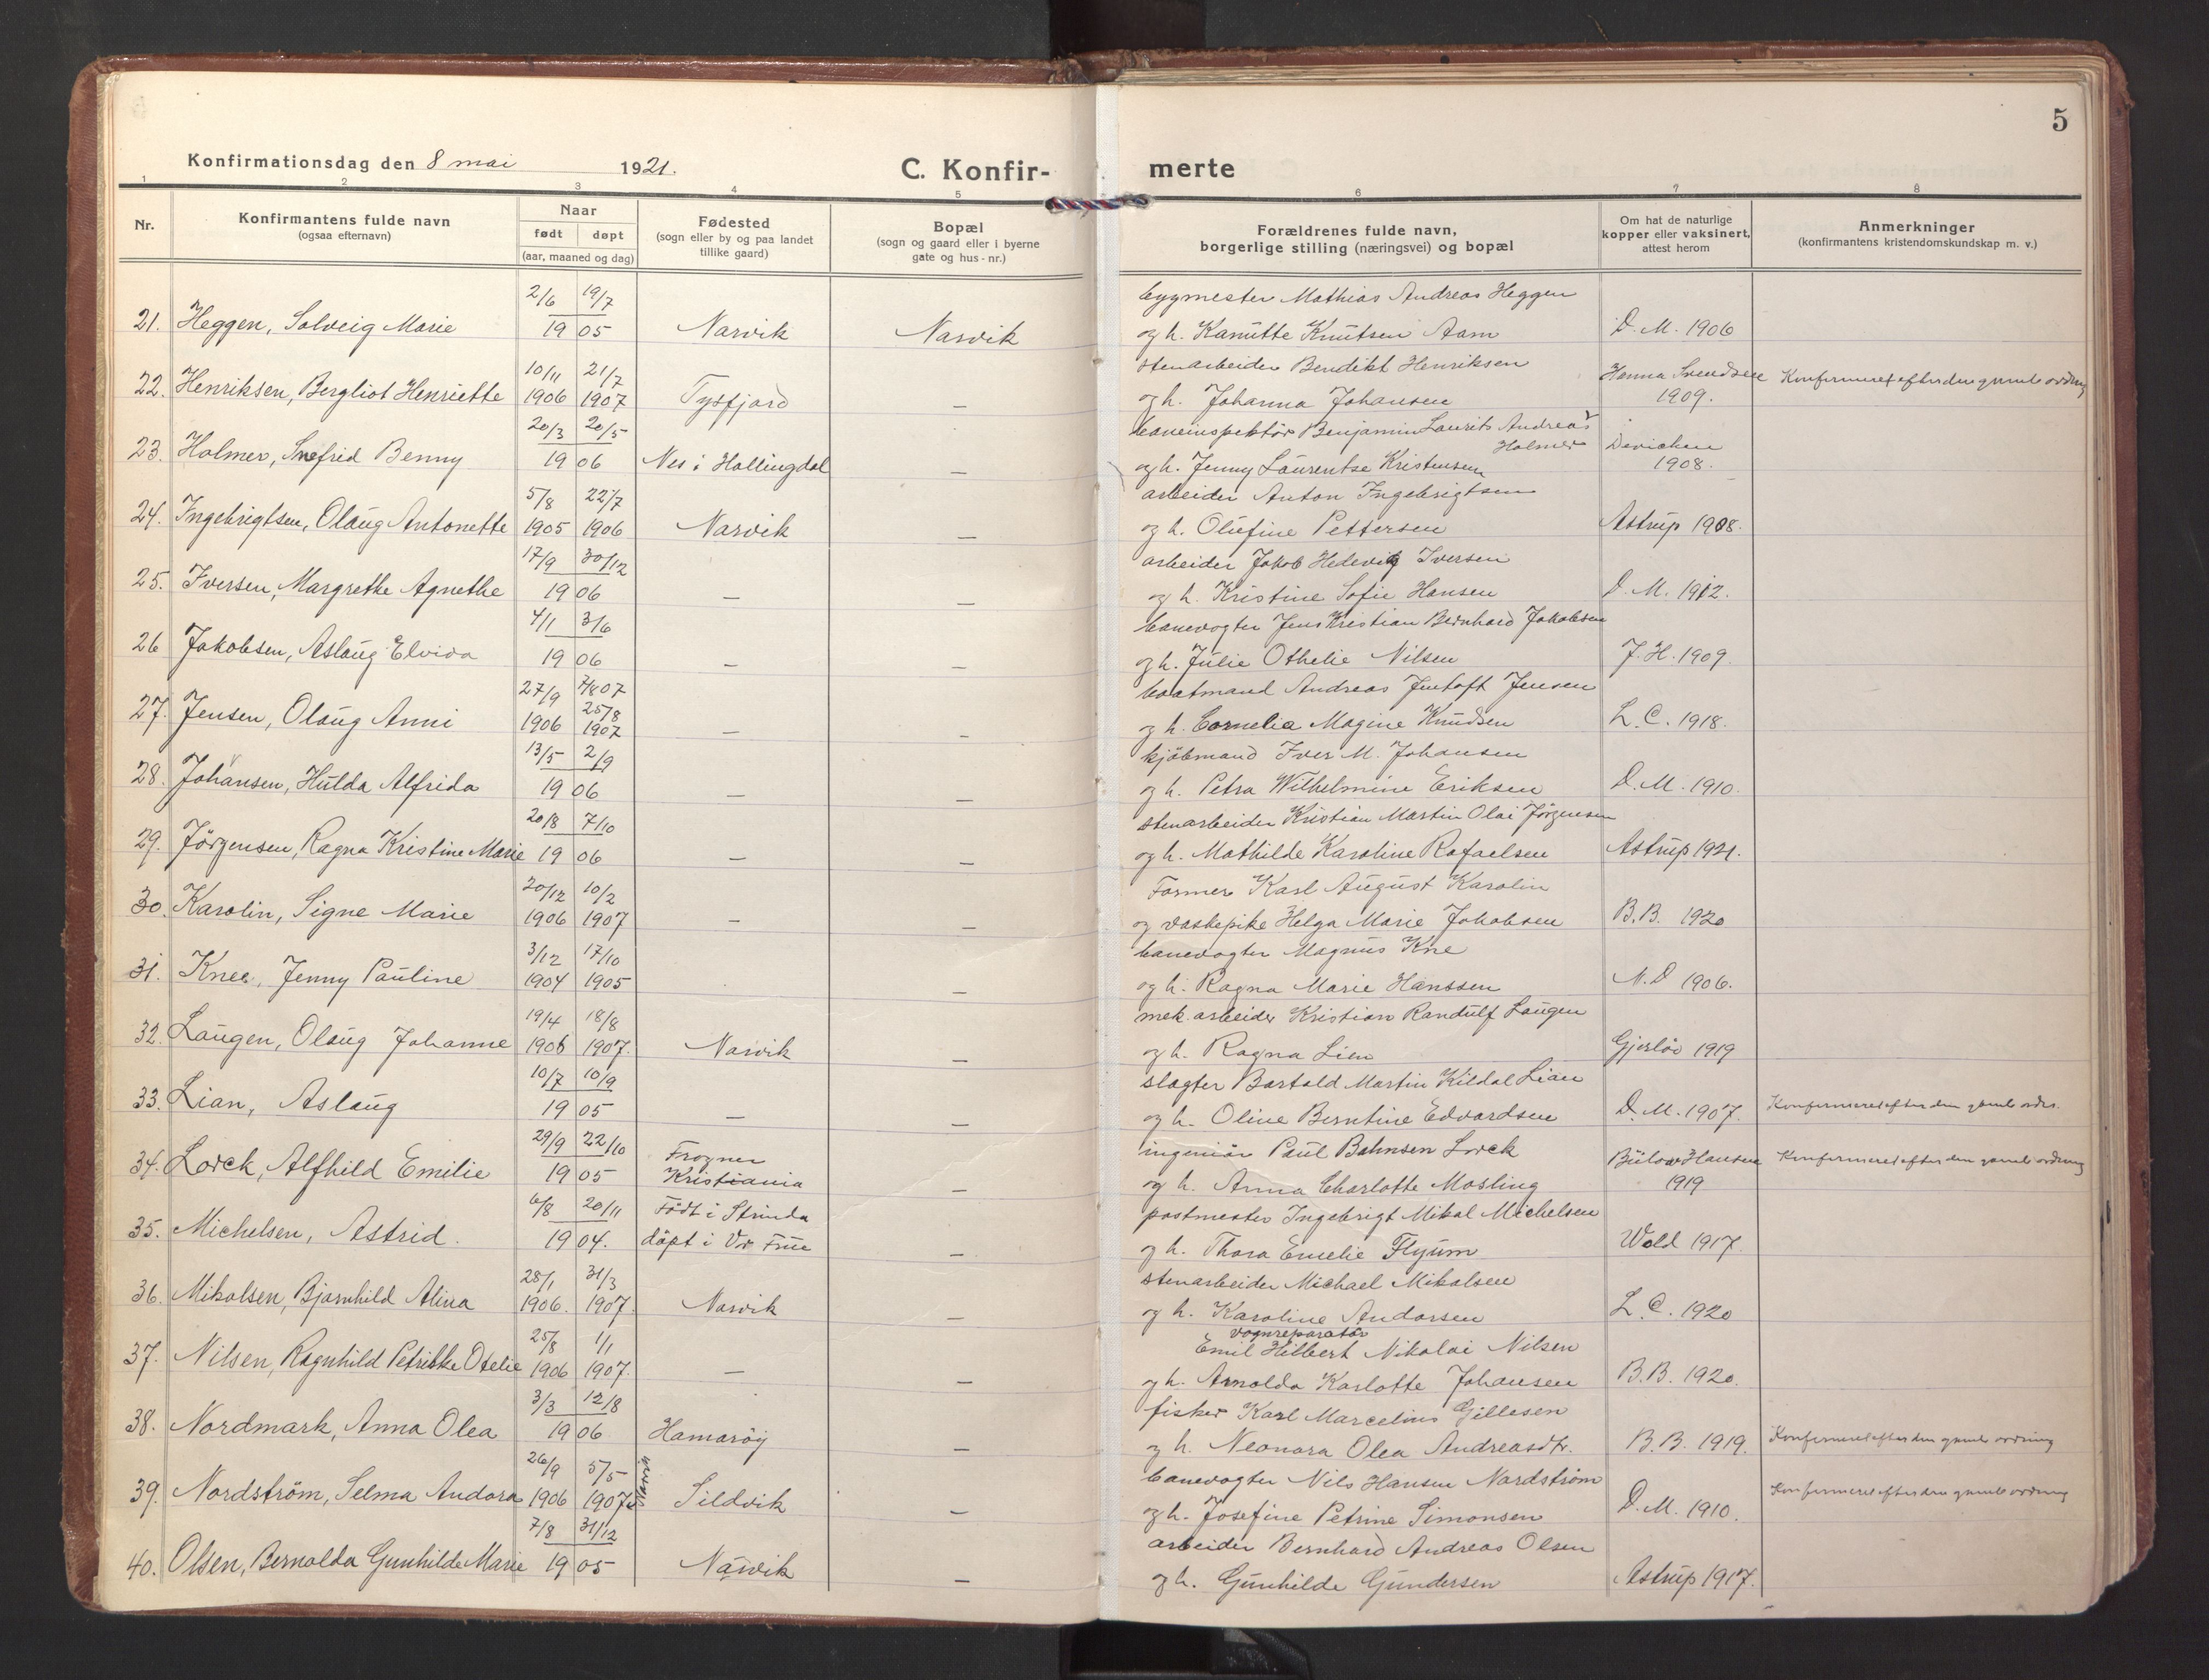 5
Konfirmationsdag den 8 mai 1921.
C. Konfir-merte
1 2 3 4 5 6 7 8
Nr.
Konfirmantens fulde navn
(ogsaa efternavn)
Naar
født døpt
(aar, maaned og dag)
Fødested
(sogn eller by og paa landet
tillike gaard)
Bopæl
(sogn og gaard eller i byerne
gate og hus-nr.)
Forældrenes fulde navn,
borgerlige stilling (næringsvei) og bopæl
Om hat de naturlige
kopper eller vaksinert,
attest herom
Anmerkninger
(konfirmantens kristendomskundskap m. v.)
2/6 19/7 bygmester Mathias Andreas Heggen
21. Heggen, Solveig Marie 1905 Narvik Narvik og h. Kanutte Knutsen Aam D. M. 1906
10/11 21/7 stenarbeider Bendikt Henriksen
22. Henriksen, Bergliot Henriette 1906 1907 Tysfjord — og h. Johanna Johansen Hanna Svendsen 1909. Konfirmeret efter den gamle ordning
20/3 20/5 baneinspektör Benjamin Laurits Andreas Holmer
23. Holmer, Snefrid Benny 1906 Nes i Hallingdal — og h. Jenny Laurentse Kristensen Devichen 1908.
5/8 22/7 arbeider Anton Ingebrigtsen
24. Ingebrigtsen, Olaug Antonette 1905 1906 Narvik — og h. Olufine Pettersen Astrup 1908.
17/9 30/12 arbeider Jakob Hedevig Iversen
25. Iversen, Margrethe Agnethe 1906 — — og h. Kristine Sofie Hansen D. M. 1912.
4/1 3/6 banevogter Jens Kristian Bernhard Jakobsen
26 Jakobsen, Aslaug Elvida 1906 — — og h. Julie Othelie Nilsen J. H. 1909.
27/9 7/8 07 baatmand Andreas Jentoft Jensen
27. Jensen, Olaug Anni 1906 25/8 1907 — — og h. Cornelia Magine Knudsen L. C. 1918.
13/5 2/9 kjöbmand Iver M. Johansen
28. Johansen, Hulda Alfrida 1906 — — og h. Petra Wilhelmine Eriksen D. M. 1910.
20/8 7/10 stenarbeider Kristian Martin Olai Jörgensen
29. Jörgensen, Ragna Kristine Marie 1906 — — og h. Mathilde Karoline Rafaelsen Astrup 1921.
20/12 10/2 Former Karl August Karolin
30. Karolin, Signe Marie 1906 1907 — — og vaskepike Helga Marie Jakobsen B. B. 1920
3/12 17/10 banevogter Magnus Kne
31. Knee, Jenny Pauline 1904 1905 — og h. Ragna Marie Hanssen M. D 1906.
19/4 18/8 mek. arbeider Kristian Randulf Laugen
32. Laugen, Olaug Johanne 1906 1907. Narvik — og h. Ragna Lien Gjerlöv 1919
10/7 10/9 slagter Bartold Martin Kildal Lian
33. Lian, Aslaug 1905 — — og h. Oline Berntine Edvardsen D. M. 1907. Konfirmeret efter den gamle ordn.
29/9 22/10 Frogner ingeniör Paul Bahnsen Lorck
34. Lorck, Alfhild Emilie 1905 Kristiania — og h. Anna Charlotte Mosling Bülow Hansen 1919 Konfirmeret efter den gamle ordning
6/8 20/11 Födt i Strinda postmester Ingebrigt Mikal Michelsen
35. Michelsen, Astrid. 1904. döpt i Vor Frue — og h. Thora Emelie Flyum Wold 1917.
28/1 31/3 stenarbeider Michael Mikalsen
36. Mikalsen, Bjarnhild Alina 1906. 1907. Narvik — og h. Karoline Andorsen L. C. 1920
25/8 1/1 vognreparatör Emil Hilbert Nikolai Nilsen
37. Nilsen, Ragnhild Petrikke Otelie 1906 1907. — — og h. Arnolda Karlotte Johansen B. B. 1920.
3/3 12/8 fisker Karl Marcelius Gillesen
38. Nordmark, Anna Olea 1906 Hamaröy — og h. Neonora Olea Andreasdtr. B. B. 1919. Konfirmeret efter den gamle ordning
26/9 5/5 banevogter Nils Hansen Nordström
39. Nordström, Selma Andora 1906 1907 Narvik Sildvik — og h. Josefine Petrine Simonsen D. M. 1910. Konfirmeret efter den gamle ordning
7/8 31/12 arbeider Bernhard Andreas Olsen
40. Olsen, Bernolda Gunhilde Marie 1905 Narvik — og h. Gunhilde Gundersen Astrup 1917.